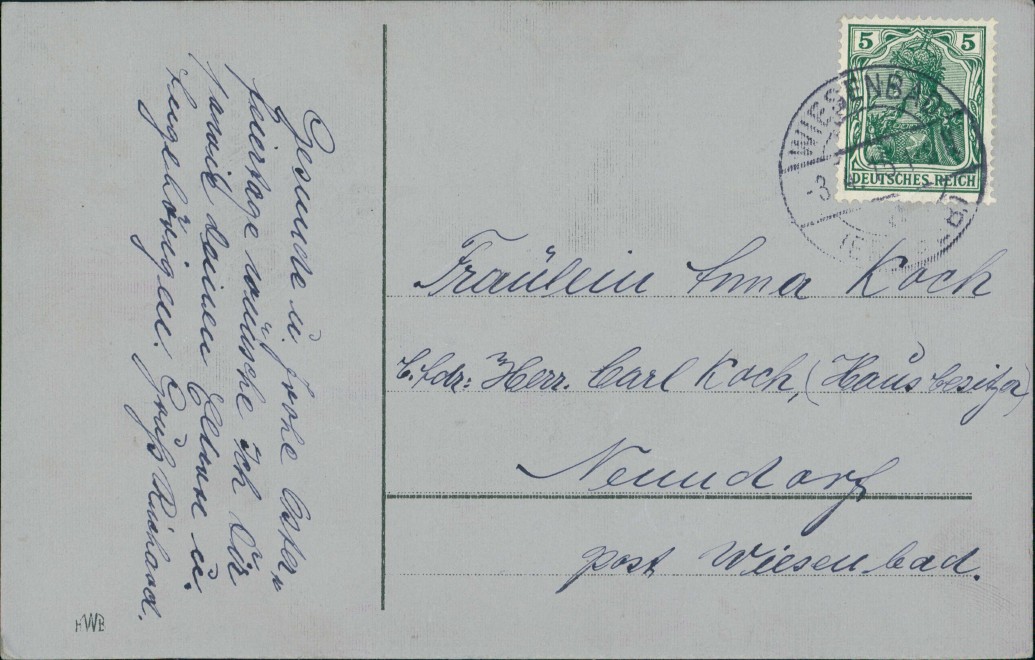 Gesunde u. frohe Oster-
feiertage wünsche ich Dir
sowie deinen Eltern u.
Angehörigen. Gruß Richard.
HWB
5 5
DEUTSCHES REICH
WIESENBAD
Fräulein Anna Koch
b. Adr: Herr. Carl Koch, (Hausbesitzer)
Neundorf
post Wiesenbad.